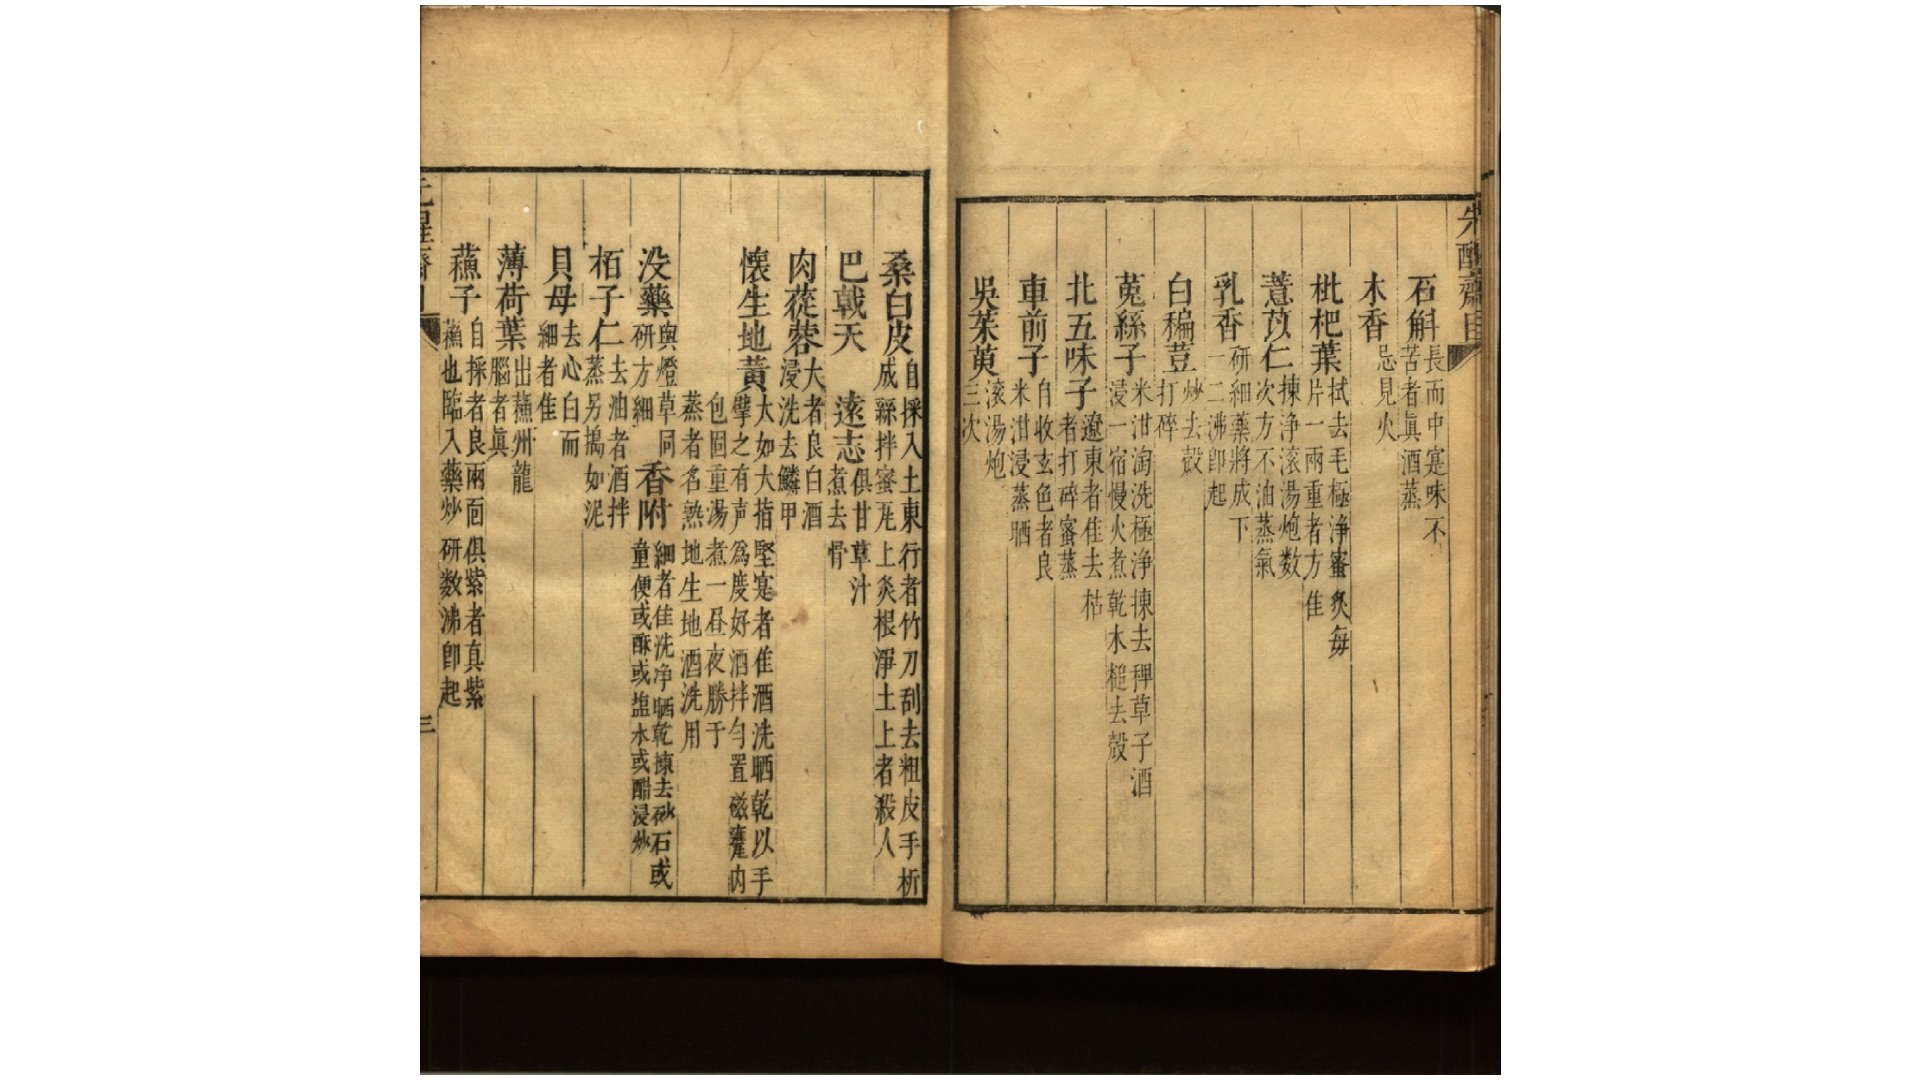 先醒齋目
石斛
長而中寔味不
苦者眞酒蒸
木香
忌見火
枇杷葉
拭去毛極浄蜜炙每
片一兩重者方佳
薏苡仁
揀浄滾湯炮数
次方不油蒸氣
乳香
研細藥將成下
一二沸卽起
白稨荳
炒去殼
打碎
莵絲子
米泔淘洗極浄揀去稗草子酒
浸一宿慢火煮乾木槌去殼
北五味子
遼東者佳去枯
者打碎蜜蒸
車前子
自收玄色者良
米泔浸蒸晒
吳茱萸
滚湯炮
三次
桑白皮
自採入土東行者竹刀刮去粗皮手析
成絲拌蜜瓦上炙根淨土上者殺人
巴戟天
遠志
俱甘草汁
煮去骨
肉蓯蓉
大者良白酒
浸洗去鱗甲
懷生地黃
大如大指堅寔者隹酒洗晒乾以手
擘之有声爲度好酒拌勻置磁甕内
包固重湯煮一昼夜勝于
蒸者名熟地生地酒洗用
没藥
與燈草同
研方細
香附
細者佳洗净晒乾揀去砂石或
童便或酥或塩水或醋浸炒
栢子仁
去油者酒拌
蒸另搗如泥
貝母
去心白而
細者佳
薄荷葉
出蘓州龍
腦者眞
蘓子
自採者良兩面俱紫者真紫
蘓也臨入藥炒研数沸卽起
先醒齋目
三